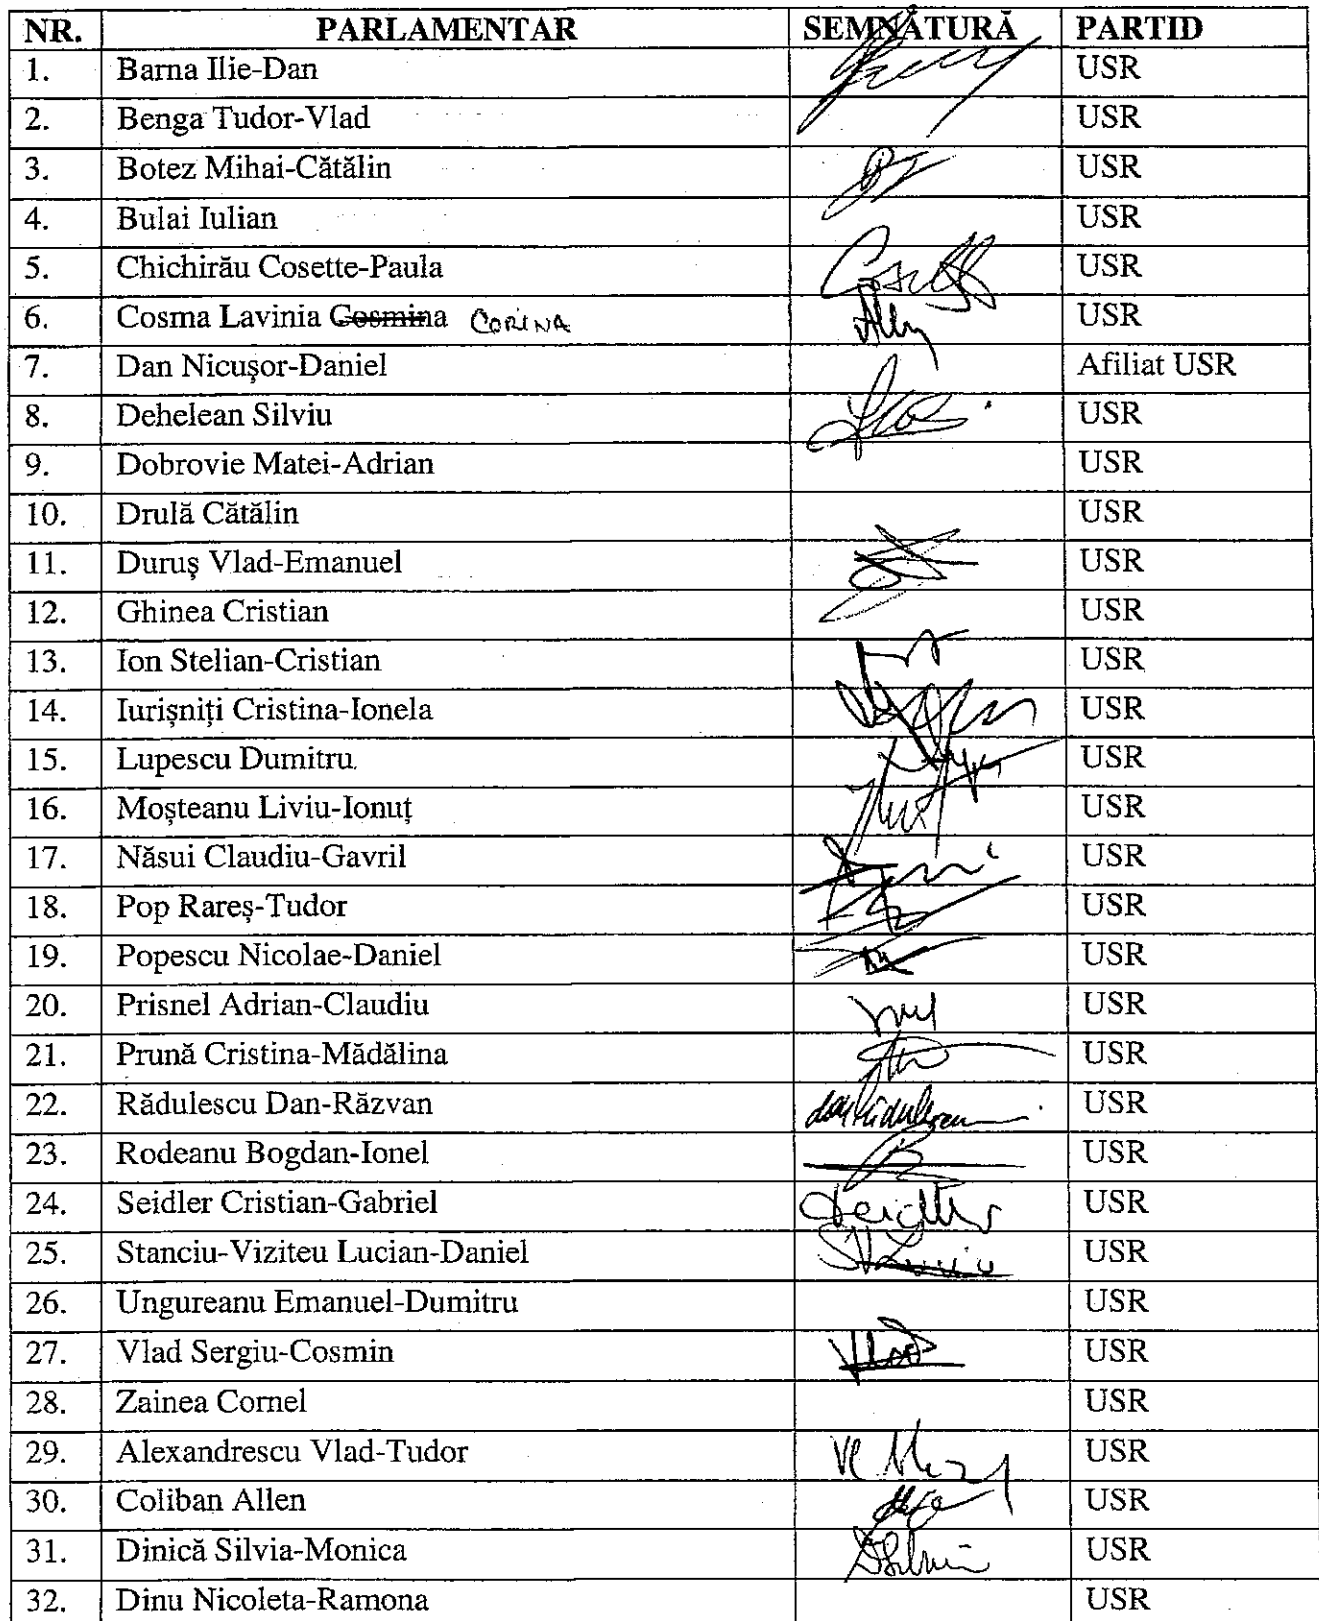 NR. PARLAMENTAR SEMNĂTURĂ PARTID
1. Barna Ilie-Dan USR
2. Benga Tudor-Vlad USR
3. Botez Mihai-Cătălin USR
4. Bulai Iulian USR
5. Chichirău Cosette-Paula USR
6. Cosma Lavinia Cosmina CORINA USR
7. Dan Nicușor-Daniel Afiliat USR
8. Dehelean Silviu USR
9. Dobrovie Matei-Adrian USR
10. Drulă Cătălin USR
11. Duruș Vlad-Emanuel USR
12. Ghinea Cristian USR
13. Ion Stelian-Cristian USR
14. Iurișniți Cristina-Ionela USR
15. Lupescu Dumitru USR
16. Moșteanu Liviu-Ionuț USR
17. Năsui Claudiu-Gavril USR
18. Pop Rareș-Tudor USR
19. Popescu Nicolae-Daniel USR
20. Prisnel Adrian-Claudiu USR
21. Prună Cristina-Mădălina USR
22. Rădulescu Dan-Răzvan USR
23. Rodeanu Bogdan-Ionel USR
24. Seidler Cristian-Gabriel USR
25. Stanciu-Viziteu Lucian-Daniel USR
26. Ungureanu Emanuel-Dumitru USR
27. Vlad Sergiu-Cosmin USR
28. Zainea Cornel USR
29. Alexandrescu Vlad-Tudor USR
30. Coliban Allen USR
31. Dinică Silvia-Monica USR
32. Dinu Nicoleta-Ramona USR